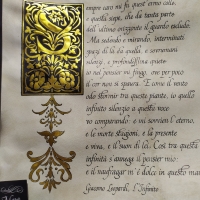 empre caro mi fu quest'ermo colle,
e questa siepe, che da tanta parte
dell'ultimo orizzonte il guardo esclude.
Ma sedendo e mirando, interminati
spazi di là da quella, e sovrumani
silenzi, e profondissima quiete
io nel pensier mi fingo, ove per poco
il cor non si spaura. E come il vento
odo stormir tra queste piante, io quello
infinito silenzio a questa voce
vo comparando: e mi sovvien l'eterno,
e le morte stagioni, e la presente
e viva, e il suon di lei. Così tra questa
infinità s'annega il pensier mio:
e il naufragar m'è dolce in questo mare
Giacomo Leopardi, L'Infinito